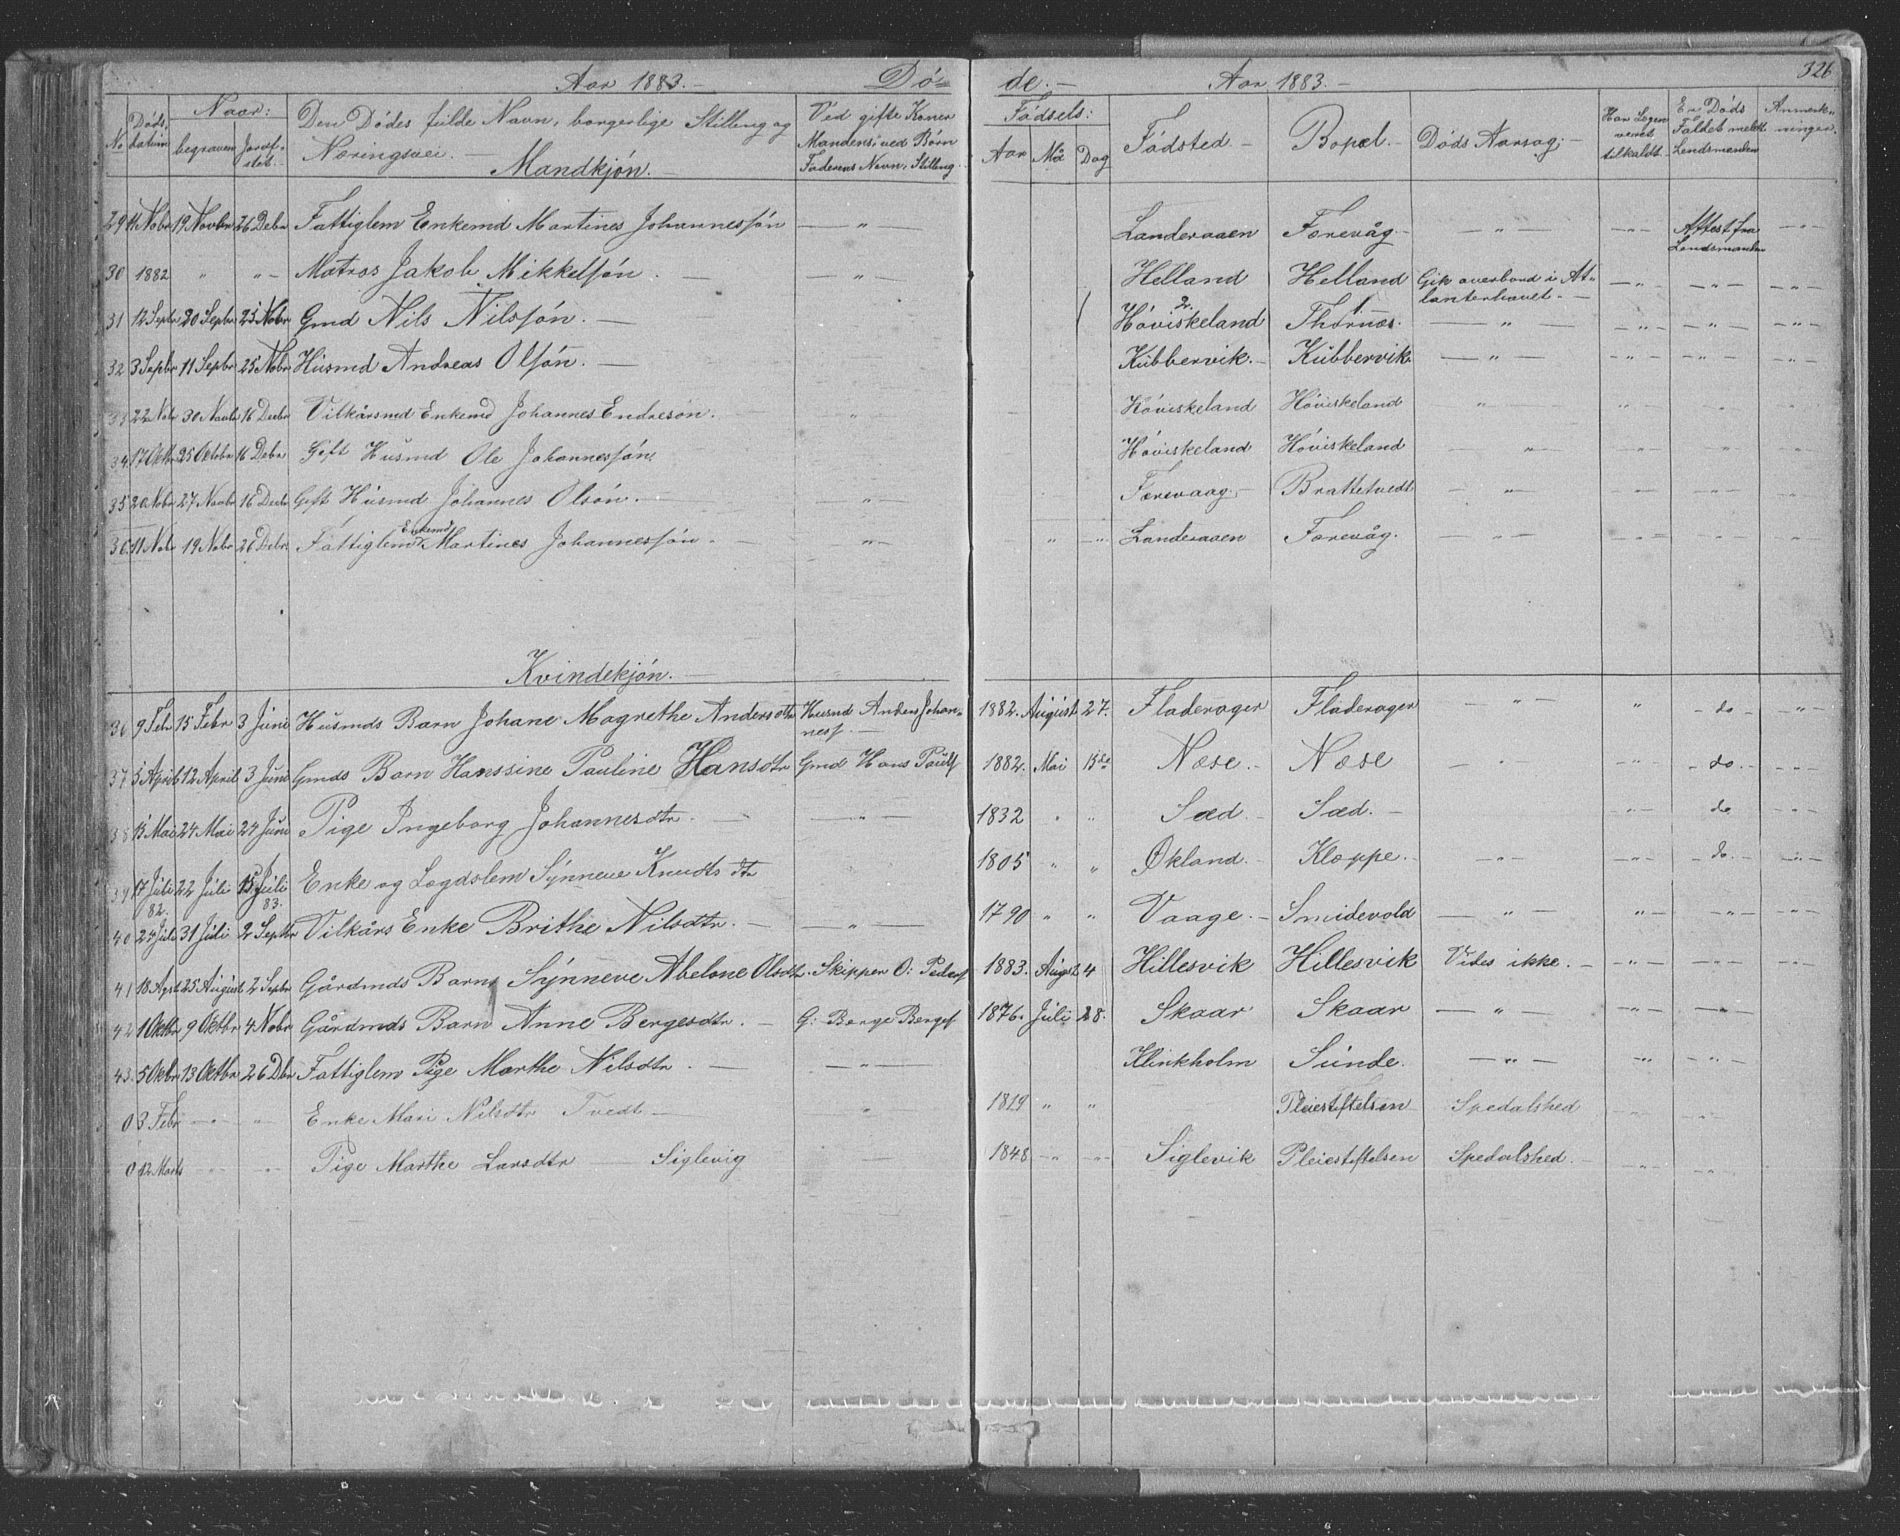 Aar 1883. Dö- de. Aar 1883. 326
No Döds datum Naar: begraven Jordf-stet. Den Dödes fulde Navn, borgerlige Stilling og Næringsvei. Ved gifte Koner Mandens; ved Börn Faderens Navn, Stilling. Födsels: Aar Md Dag Födsted Bopæl. Döds Aarsag; Har Lægen været tilkaldt Er Döds Faldet meldt Lendsmanden Anmerk-ninger.
Mandkjön.
29 11 Nobr 19 Novbr 26 Debr Fattiglem Enkemd Martines Johannesſön — " — Landeraaen Færevåg — " — — " — Attest fra Lendsmanden — " —
30 1882 " " Matros Jakob Mikkelſön. — " — Helland Helland Gik overbord i At-lanterhavet. — " — — " — — " —
31 12 Septr 20 Septr 25 Nobr Gmd Nils Nilsſön. Höviskeland Thornæs. — " — — " — — " — — " —
32 3 Sepbr 11 Sepbr 25 Nobr Husmd Andreas Olſön. Kubbervik. Kubbervik — " — — " — — " — — " —
33 22 Nobr 30 Novbr 16 Decbr Vilkårsmd Enkemd Johannes Endresön. " Höviskeland Höviskeland " "
34 17 Oktbr 25 Octobr 16 Debr Gift Husmd Ole Johannesſön. Höviskeland Höviskeland — " — — " —
35 20 Nobr 27 Novbr 16 Decbr Gift Husmd Johannes Olsön. — " — Færevaag. Brattetvedt — " —
36 11 Nobr 19 Nobr 26 Debr Fattiglem Enkemd Martines Johannesſön. — " — " " Landeraaen Færevåg. — " — — " — — " —
Kvindekjön.
36 9 Febr 15 Febr 3 Juni Husmds Barn Johane Magrethe Andersdtr Husmd Anders Johan-nesſ. 1882. August 27. Fladerager Fladerager — " — " — do — — " —
37 5 April 12 April 3 Juni Gmds Barn Hanssine Pauline Hansdtr Gmd Hans Paulſ 1882. Mai 15de Næse. Næse — do —
38 15 Mai 24 Mai 24 Juni Pige Ingeborg Johannesdtr. — " — 1832 " " Sæd. Sæd. — " — do — " —
39 17 Juli 82. 22 Juli 15 Juli 83. Enke og Lægdslem Synneve Knudts dtr 1805 " " Økland. Kloppe. — " — — " — do. — " —
40 24 Juli 31 Juli 2 Septbr Vilkårs Enke Brithe Nilsdtr. — " — 1790 " " Vaage. Smidevold — " — " — — " — — " —
41 18 Agst 25 August 2 Sepbr Gårdmds Barn Synneve Abelone Olsdtr. Skipper O: Pedersſ 1883. August 4 Hillesvik Hillesvik Vides ikke. — " — — " — — " —
42 1 Oktbr 9 Oktbr 4 Nobr Gårdmds Barn Anne Bergesdtr. G: Berge Bergeſ 1876. Juli 28. Skaar Skaar — " — — " — — " —
43. 5 Oktbr 13 Oktbr 26 Dbr Fattiglem Pige Marthe Nilsdtr. — " — Klinkholm Sunde. — " — — " — — " —
0 3 Febr — " Enke Mari Nilsdtr Tvedt — " 1819 " " Pleiestiftelsen Spedalshed
0 12 Marts " " Pige Marthe Larsdtr Siglevig — " — 1848 — " — — " — Siglevik Pleiestiftelsen Spedalshed. — " — — " —